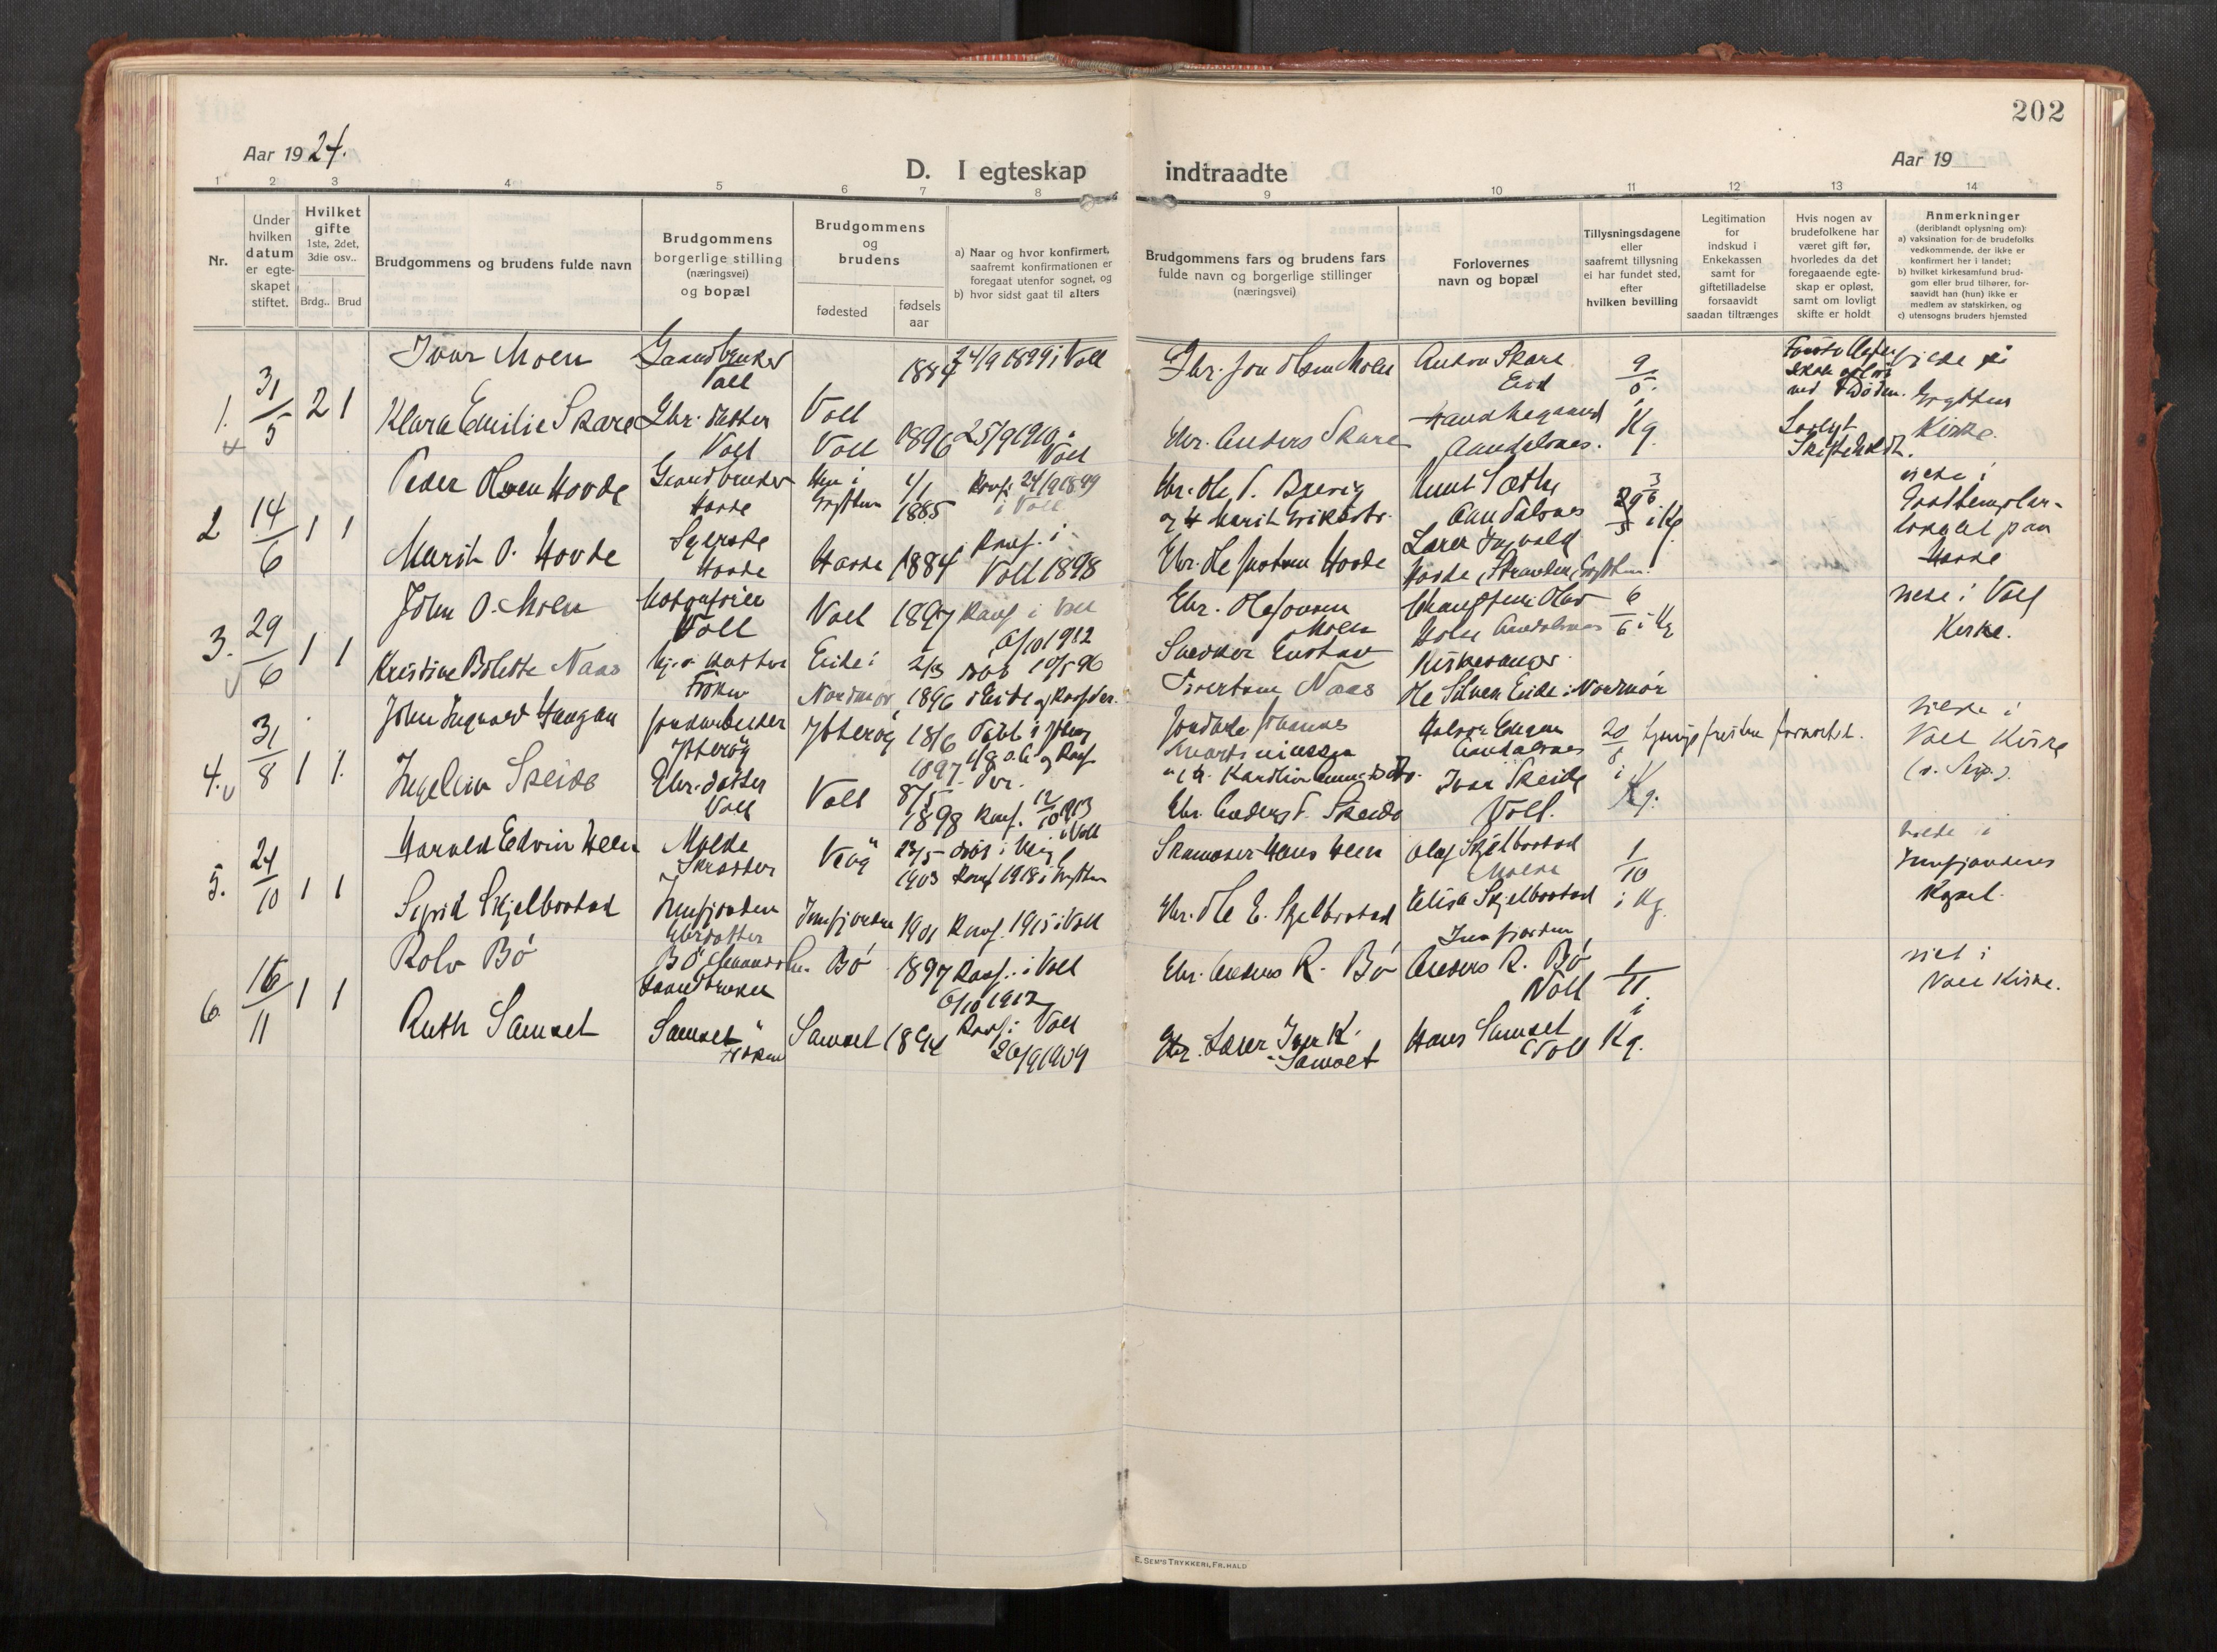 202
Aar 1924.
D. I egteskap indtraadte
Aar 19
1 2 3 4 5 6 7 8 9 10 11 12 13 14
Nr.
Under
hvilken
datum
er egte-
skapet
stiftet.
Hvilket
gifte
1ste, 2det,
3die osv..
Brdg.. Brud
Brudgommens og brudens fulde navn
Brudgommens
borgerlige stilling
(næringsvei)
og bopæl
Brudgommens
og
brudens
fødested
fødsels
aar
a) Naar og hvor konfirmert,
saafremt konfirmationen er
foregaat utenfor sognet, og
b) hvor sidst gaat til alters
Brudgommens fars og brudens fars
fulde navn og borgerlige stillinger
(næringsvei)
Forlovernes
navn og bopæl
Tillysningsdagene
eller
saafremt tillysning
ei har fundet sted,
efter
hvilken bevilling
Legitimation
for
indskud i
Enkekassen
samt for
giftetilladelse
forsaavidt
saadan tiltrænges
Hvis nogen av
brudefolkene har
været gift før,
hvorledes da det
foregaaende egte-
skap er opløst,
samt om lovligt
skifte er holdt
Anmerkninger
(deriblandt oplysning om):
a) vaksination for de brudefolks
vedkommende, der ikke er
konfirmert her i landet;
b) hvilket kirkesamfund brud-
gom eller brud tilhører, for-
saavidt han (hun) ikke er
medlem av statskirken, og
c) utensogns bruders hjemsted
1. 31/5 2 1
Ivar Moen
Gaardbruker
Voll
Voll
1884
24/9 1899 i Voll
Gbr. Jon Olsen Moen
Anton Skare
Eid
9/5
i
Kg.
ved Døden.
Lovlyt
Skifte holdt.
viede i
Grytten
Kirke.
Klara Emilie Skare
Gbr. datter
Voll
Voll
1896
25/9 1910 i
Voll
Gbr. Anders Skare
Aandalsnes.
2 14/6 1 1
Peder Olsen Hovde
Gaardbruker
Hovde
Hen i
Grytten
4/1
1885
Konf. 24/9 1899
i Voll
Gbr. Ole P. Brevig
Knut Sæthe
Aandalsnes
i Kg.
viede i
Godtemplar-
lokalet paa
Hovde
Marit O. Hovde
Syerske
Hovde
Hovde
1884
Konf. i
Voll 1898
Gbr. Ole Hovde
Lærer Ingvald
Hovde,
3. 29/6 1 1
John O. Moen
Voll
Voll
1897
Konf. i Voll
6/10 1912
Gbr. Ole Jonsen
Moen
Aandalsnes
6/6 i Kg
viede i Voll
Kirke.
Kristine Bolette Naas
Frøken
Eide i
Nordmør
2/3
1896
døb 10/5 96
i Eide og Konf. der.
Snedker Gustav
Sivertsen Naas
Kirkesanger
Ole Silnes Eide i Nordmør
4. 31/8 1 1
John Ingvard Haugan
Jordarbeider
Ytterøy
Ytterøy
18/6
1897
Døbt i Ytterøy
1/8 s.a. og Konf.
der.
Jordbr. Johannes
Martiniussen
Aandalsnes
i
Kg.
viede i
Voll Kirke
Ingeleiv Skeide
Gbr. datter
Voll
Voll
8/5
1898
Konf. 12/10 1913
i Voll
Gbr. Anders P. Skeide
Ivar Skeide
Voll.
5. 24/10 1 1
Harald Edvin Heen
Molde
Skrædder
Veøy
1903
Konf. 1918 i Grytten
Skomager Hans Heen
Olaf Skjelbostad
Molde
1/10
i Kg
viede i
Innfjordens
Kapel.
Sigrid Skjelbostad
Innfjorden
Gbrdatter
Innfjorden
1901
Konf. 1915 i Voll
Gbr. Ole E. Skjelbostad
Elise Skjelbostad
Innfjorden
6 16/11 1 1
Rolv Bö
Bö
Gaardbruker
Bö
1897
Konf. i Voll
6/10 1912
Gbr. Anders R. Bö
Anders R. Bö
Voll
1/11
i
Kg.
viet i
Voll Kirke.
Ruth Samset
Samset
Frøken
Samset
1894
Konf. i Voll
26/9 1909
Gbr. Lærer Iver K.
Samset
Hans Samset
Voll
E. SEM'S TRYKKERI, FR.HALD